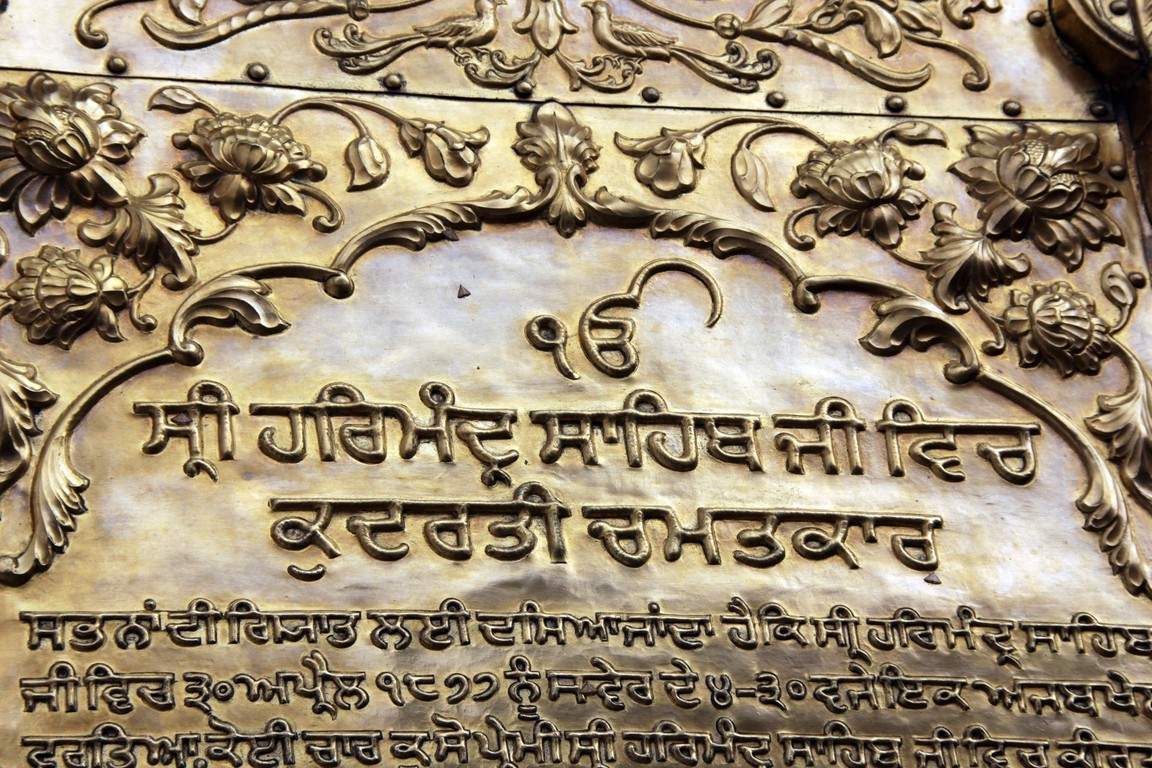 ੴ
ਸ੍ਰੀ ਹਰਿਮੰਦ੍ਰ ਸਾਹਿਬ ਜੀ ਵਿਚ
ਕੁਦਰਤੀ ਚਮਤਕਾਰ
ਸਭਨਾਂ ਦੀ ਗਿਆਤ ਲਈ ਦਸਿਆ ਜਾਂਦਾ ਹੈ ਕਿ ਸ੍ਰੀ ਹਰਿਮੰਦ੍ਰ ਸਾਹਿਬ
ਜੀ ਵਿਚ ੩੦ ਅਪ੍ਰੈਲ ੧੮੭੭ ਨੂੰ ਸਵੇਰ ਦੇ ੪-੩੦ ਵਜੇ ਇਕ ਅਜਬ
ਵਰਤਿਆ ਕੋਈ ਚਾਰ ਕੁ ਸੌ ਪ੍ਰੇਮੀ ਸ੍ਰੀ ਹਰਿਮੰਦ੍ਰ ਸਾਹਿਬ ਜੀ ਵਿਚ